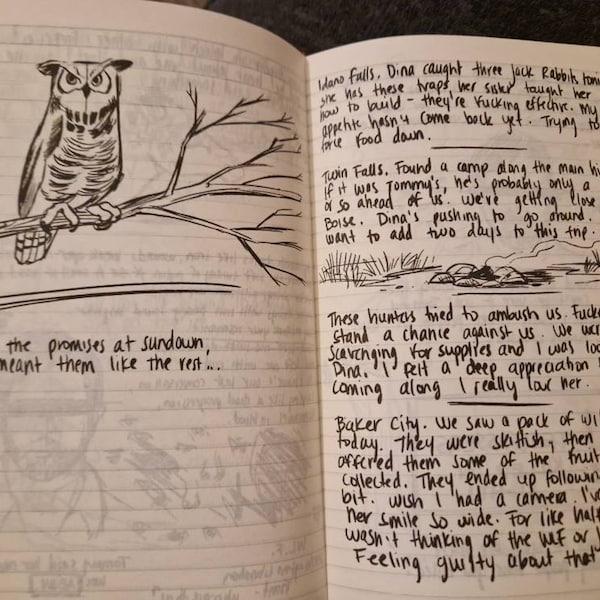 the promises at sundown,
meant them like the rest...
Idaho Falls. Dina caught three Jack Rabbits
she has these traps her sister taught her
how to build - they're fucking effective. My
appetite hasn't come back yet. Trying to
force food down.
Twin Falls. Found a camp along the main
if it was Tommy's, he's probably only a
or so ahead of us. We're getting close
Boise. Dina's pushing to go around.
want to add two days to this trip.
These hunters tried to ambush us.
stand a chance against us. We were
scavenging for supplies and I was
Dina. I felt a deep appreciation
coming along I really love her.
Baker City. We saw a pack of
today. They were skittish, then
offered them some of the fruit
collected. They ended up following
bit. wish I had a camera. I've
her smile so wide. For like half
wasn't thinking of the WLF or
Feeling guilty about that